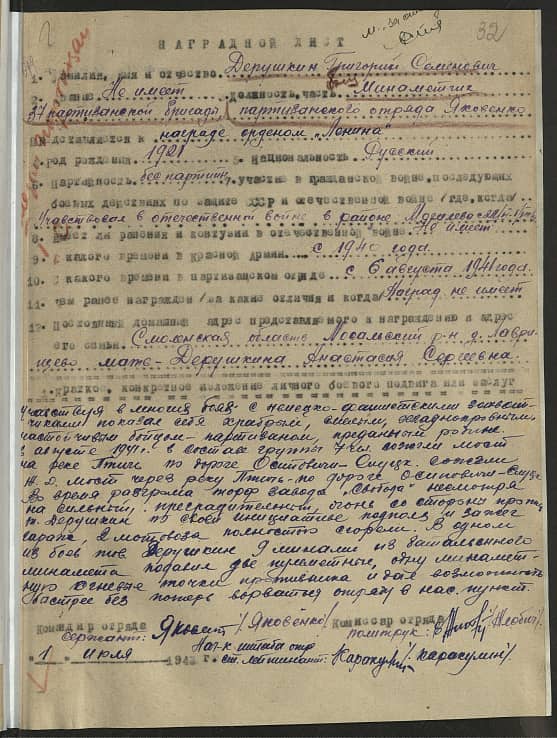 32
НАГРАДНОЙ ЛИСТ
1. Фамилия, имя и отчество Дерушкин Григорий Семенович
2. Звание Не имеет должность, часть быв. Минаметчик
37 партизанской бригады партизанского отряда Яковенко
Представляется к награде орденом „Ленина"
4. год рождения 1921 5. Национальность Русский
6. Партийность беспартийн 7. участие в гражданской войне, последующих
боевых действиях по защите СССР и отечественной войне /где, когда/
Участвовал в отечественной войне в районе
8. Имеет ли ранения и контузии в отечественной войне Не имеет
9. С какого времени в Красной Армии с 1940 года.
10. С какого времени в партизанском отряде с 6 августа 1941 года.
11. Чем ранее награжден /за какие отличия и когда/ Наград не имеет
12. Постоянный домашний адрес представляемого к награждению и адрес
его семьи Смоленская область Мосальский р-н д. Лаври-
щево мать- Дерушкина Анастасия Сергеевна
Краткое, конкретное изложение личного боевого подвига или заслуг
Участвуя в многих боях с немецко-фашистскими захват-
чиками показал себя храбрым, смелым, хладнокровным,
настойчивым бойцом-партизаном, преданным родине
В августе 1941г. в составе группы 7 чл. сожгли мост
на реке Птичь по дороге Осиповичи-Слуцк. Сожгли
ж.д. мост через реку Птичь по дороге Осиповичи-Слуцк
Во время разгрома торф завода „Свобода" несмотря
на сильный, преградительный огонь со стороны против.
т. Дерушкин по своей инициативе подполз и зажег
гараж, 2 мотовоза полностью сгорели. В одном
из боев тов. Дерушкин 9 минами из батальонного
минамета подавил две пулеметные, одну минамет-
ную огневые точки противника и дал возможность
быстрее без потерь ворваться отряду в нас. пункт.
Командир отряда Комиссар отряда
сержант: Яковенко /Яковенко/ политрук: /Жлобич/
Нач-к штаба отр
"1" июля 194 г. ст. лейтинант: Каракулин /Каракулин/.